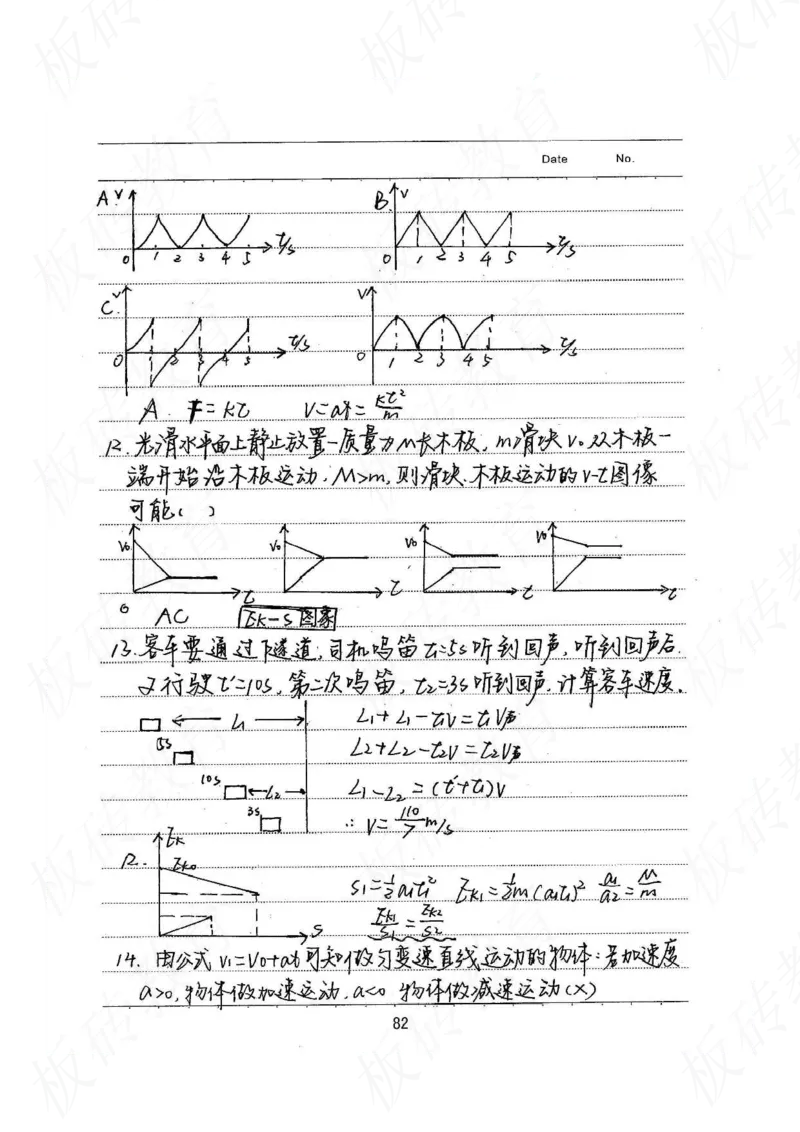 Date No.
A. V B. V
0 1 2 3 4 5 t/s 0 1 2 3 4 5 t/s
C. V V
0 1 2 3 4 5 t/s 0 1 2 3 4 5 t/s
A. F=kt V=at=kt²/m
12. 光滑水平面上静止放置一质量为M长木板，m滑块v₀从木板一
端开始沿木板运动，M>m，则滑块、木板运动的v-t图像
可能( )
V₀ V₀ V₀ V₀
0 t t t t
AC Ek-S图象
13. 客车要通过下隧道，司机鸣笛t₁=5s听到回声，听到回声后
又行驶t'=10s，第二次鸣笛，t₂=3s听到回声，计算客车速度.
L₁ L₁+L₁-t₁V=t₁V声
5s L₂+L₂-t₂V=t₂V声
10s L₂ L₁-L₂=(t'+t₁)V
3s ∴V=110/7 m/s
12. Ek Ek₀
S₁=½a₁t₁² Ek₁=½m(a₁t₁)² a₁/a₂=M/m
S Ek₁/S₁=Ek₂/S₂
14. 由公式v₁=v₀+at可知做匀变速直线运动的物体：若加速度
a>0，物体做加速运动，a<0 物体做减速运动(×)
82
板砖教育